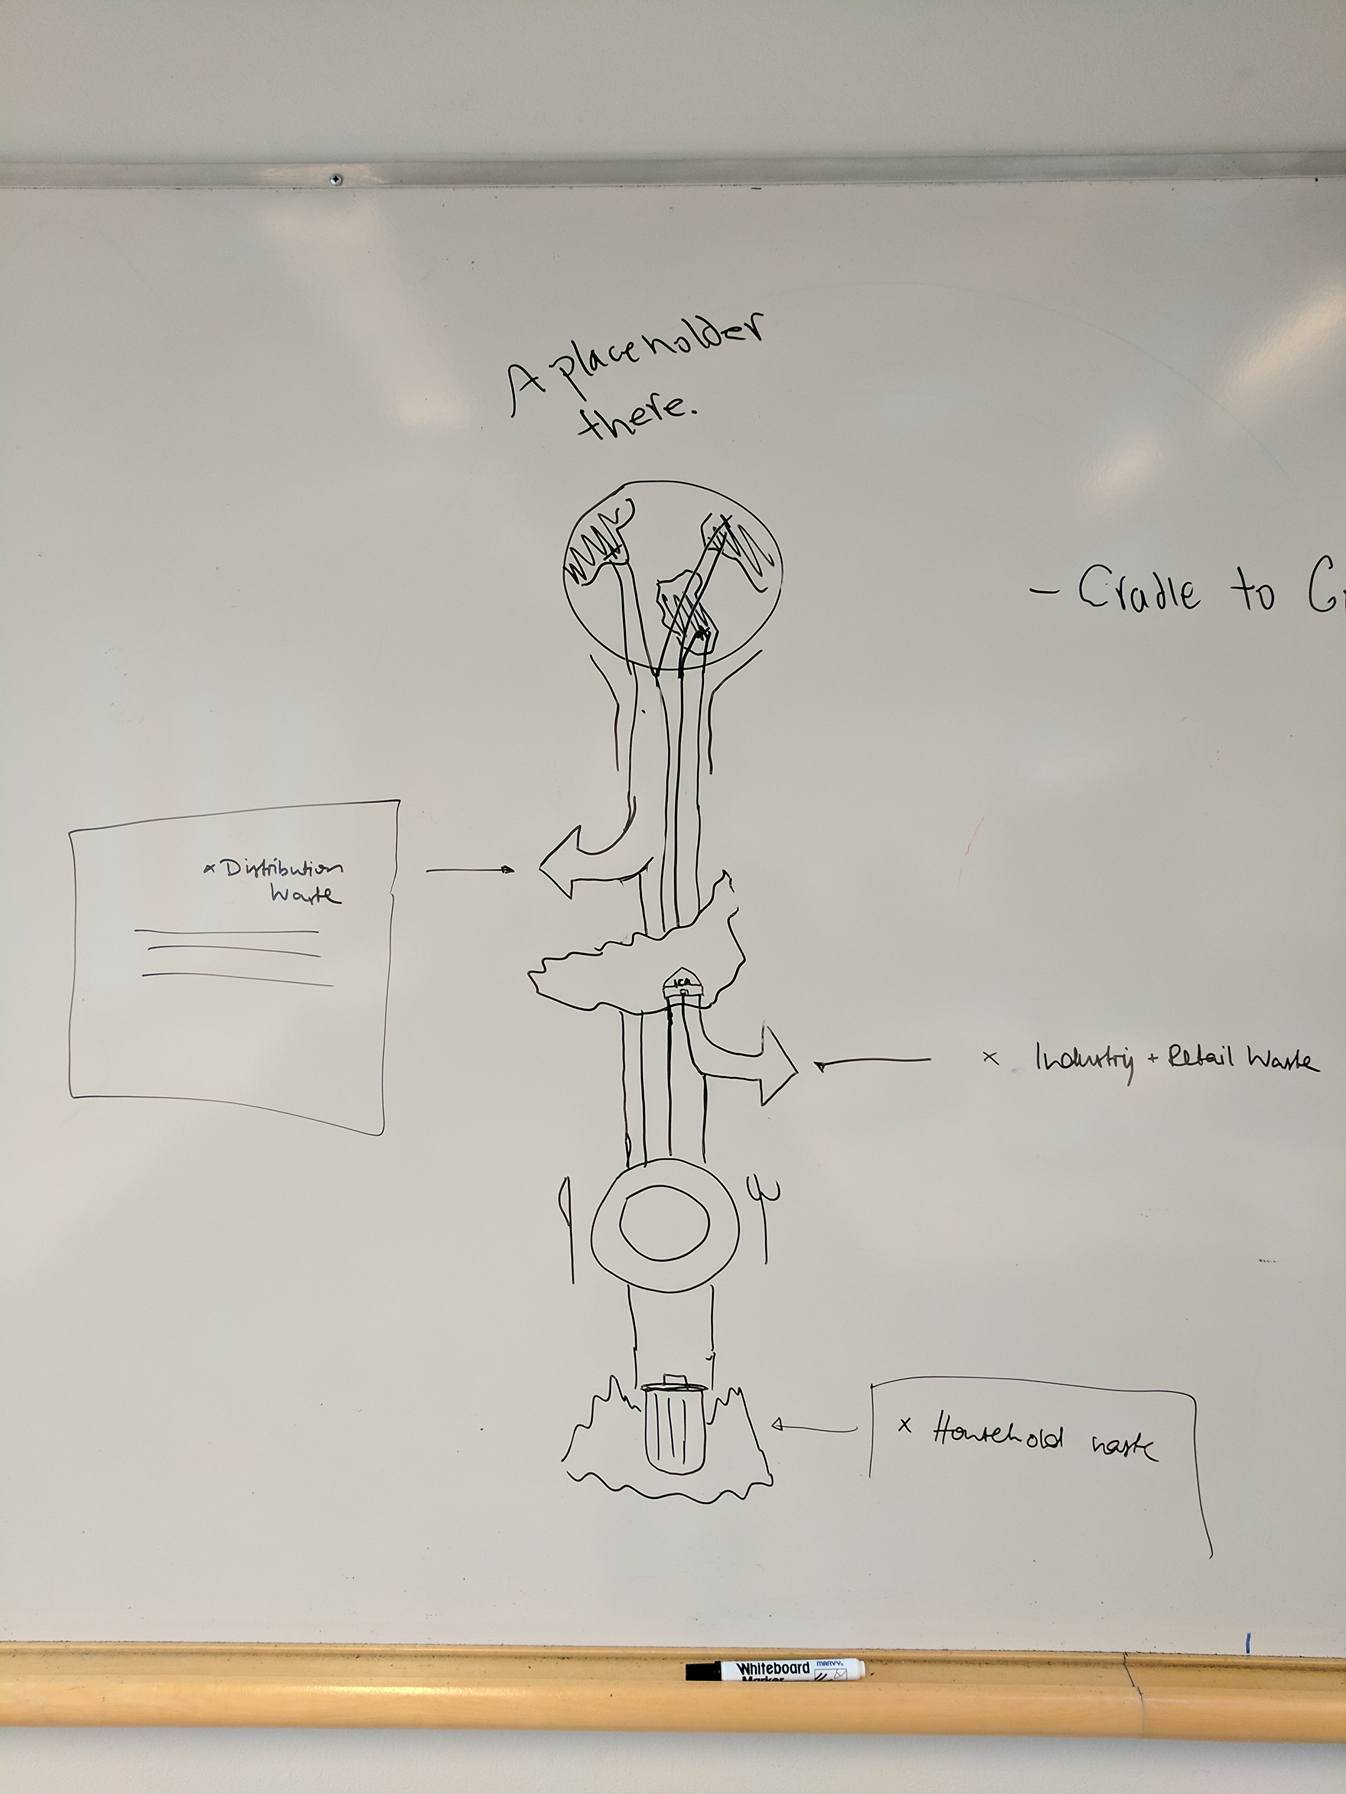 A placeholder
there.
- Cradle to
× Distribution
Waste
ICA
× Industry + Retail Waste
× Household waste
Whiteboard
Marker
MARVY